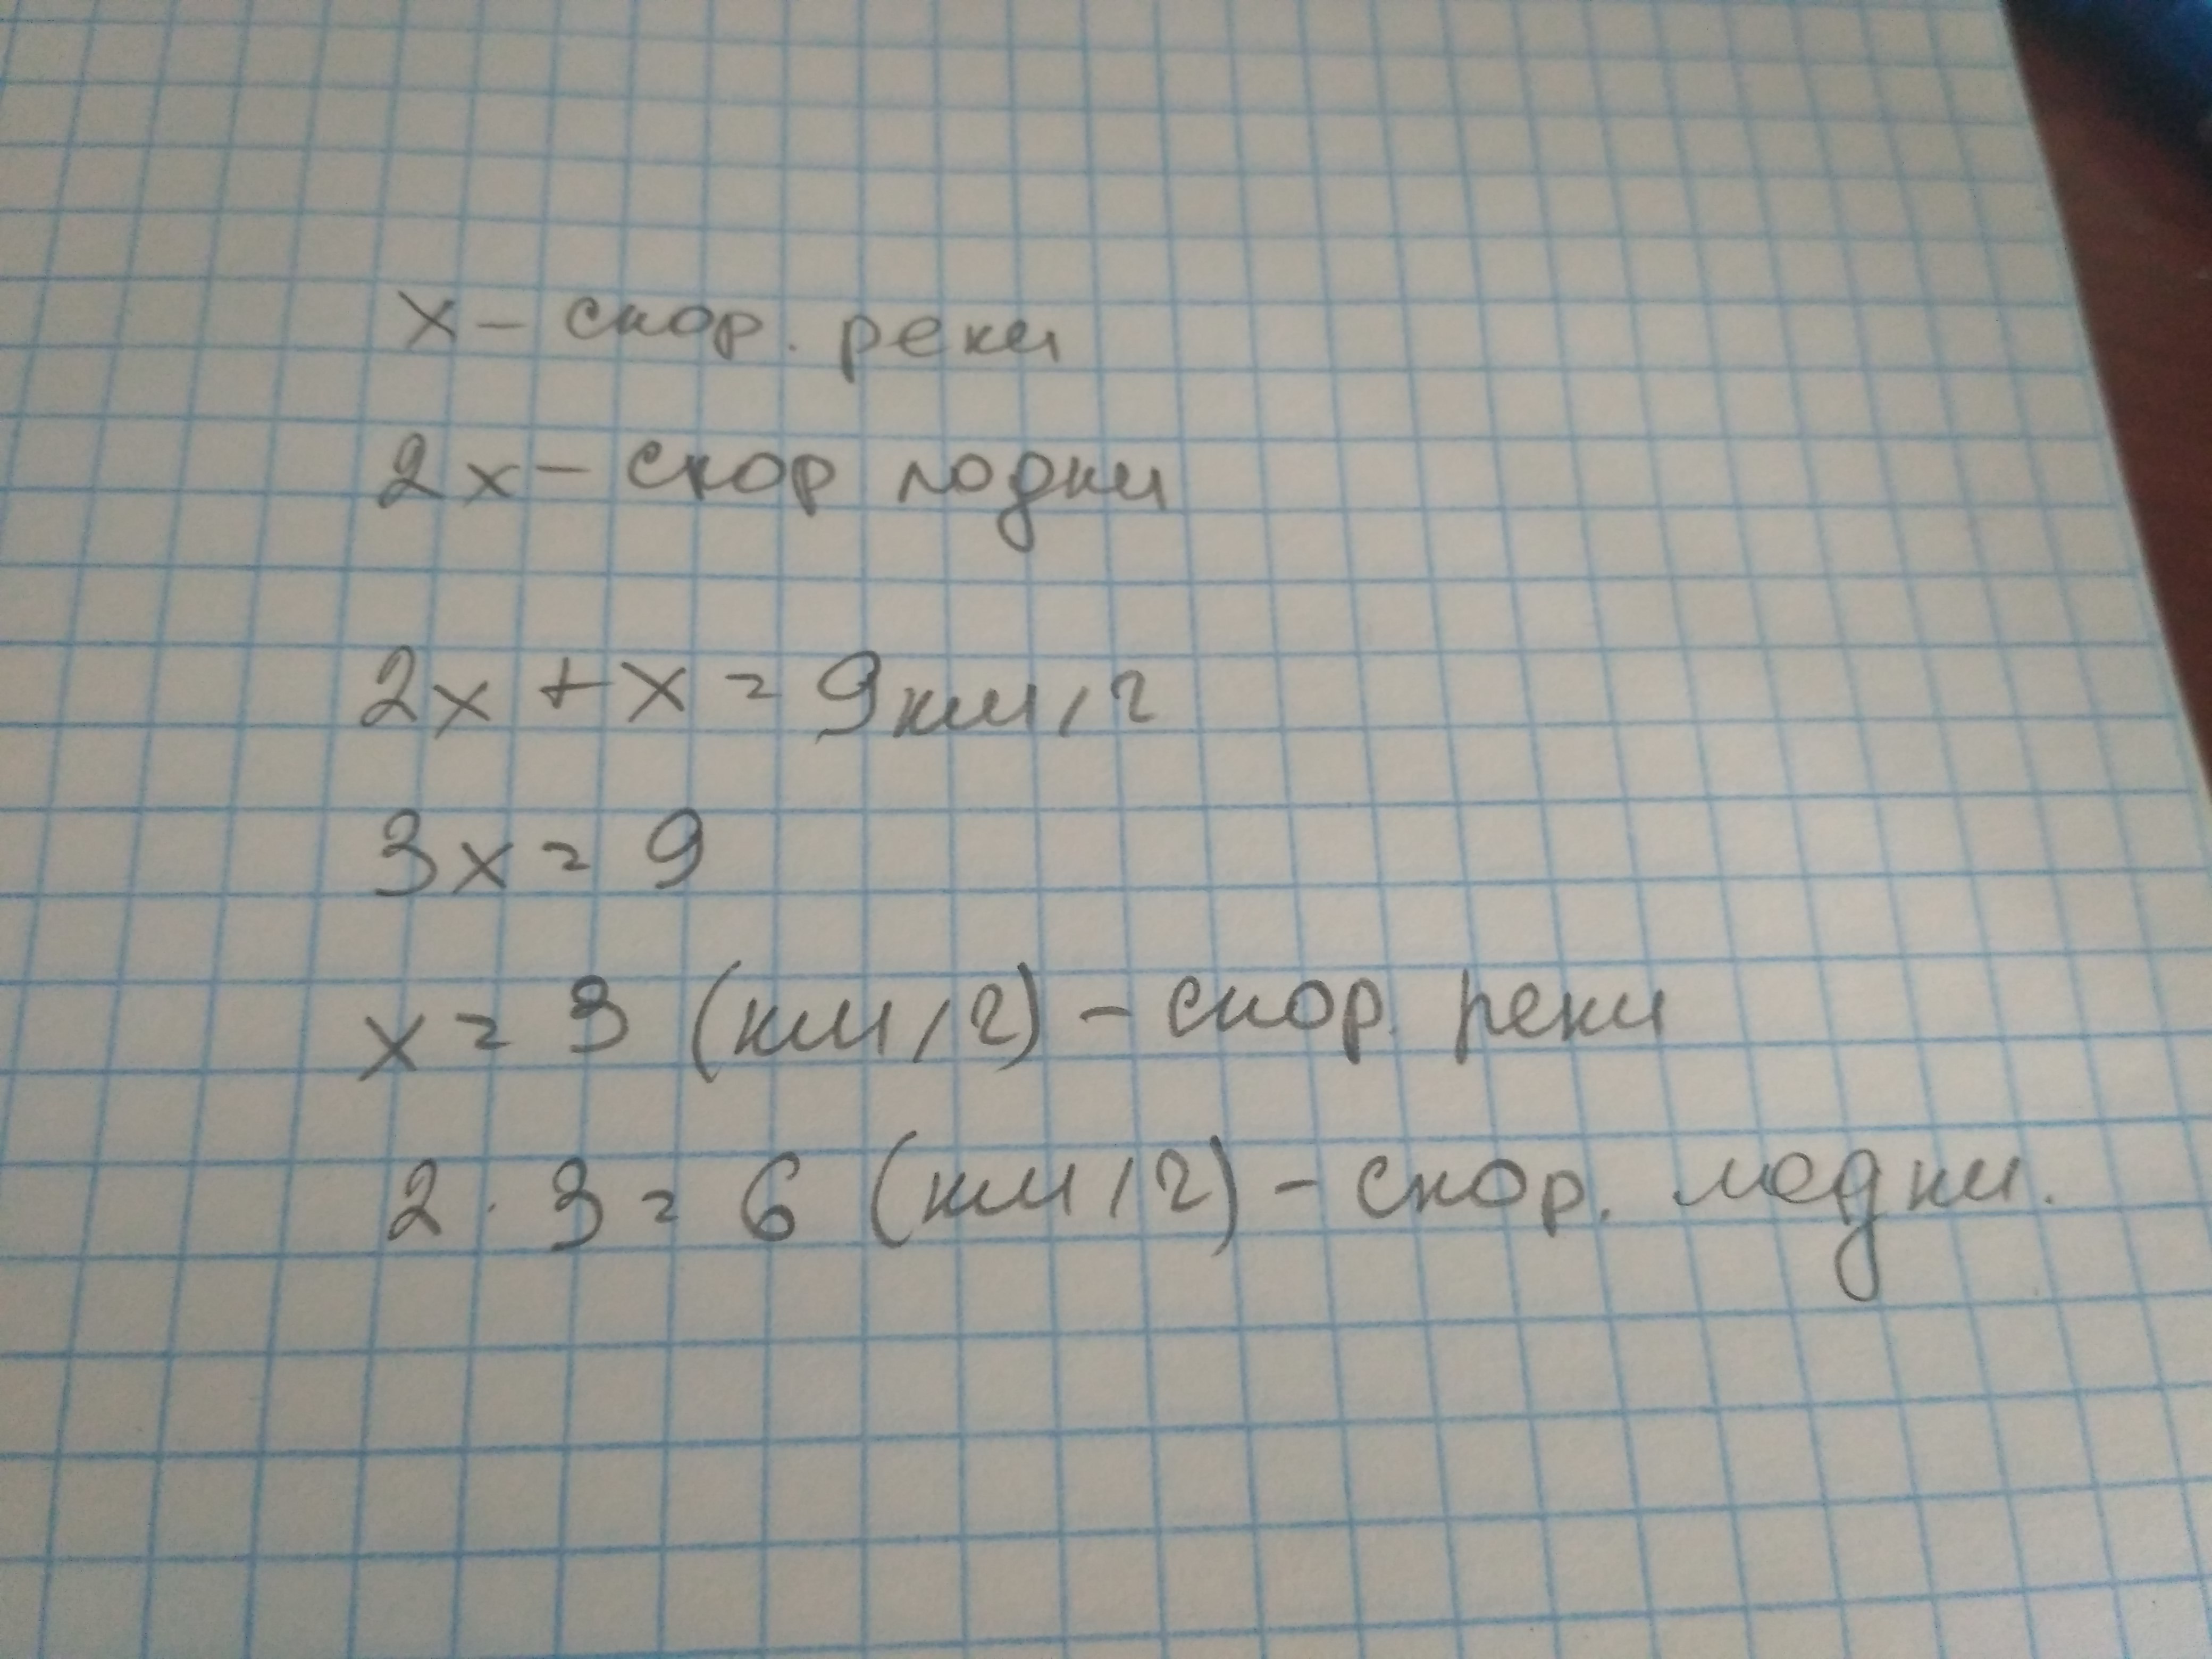 x - скор. реки
2x - скор лодки
2x + x = 9км/г
3x = 9
x = 3 (км/г) - скор. реки
2 · 3 = 6 (км/г) - скор. лодки.